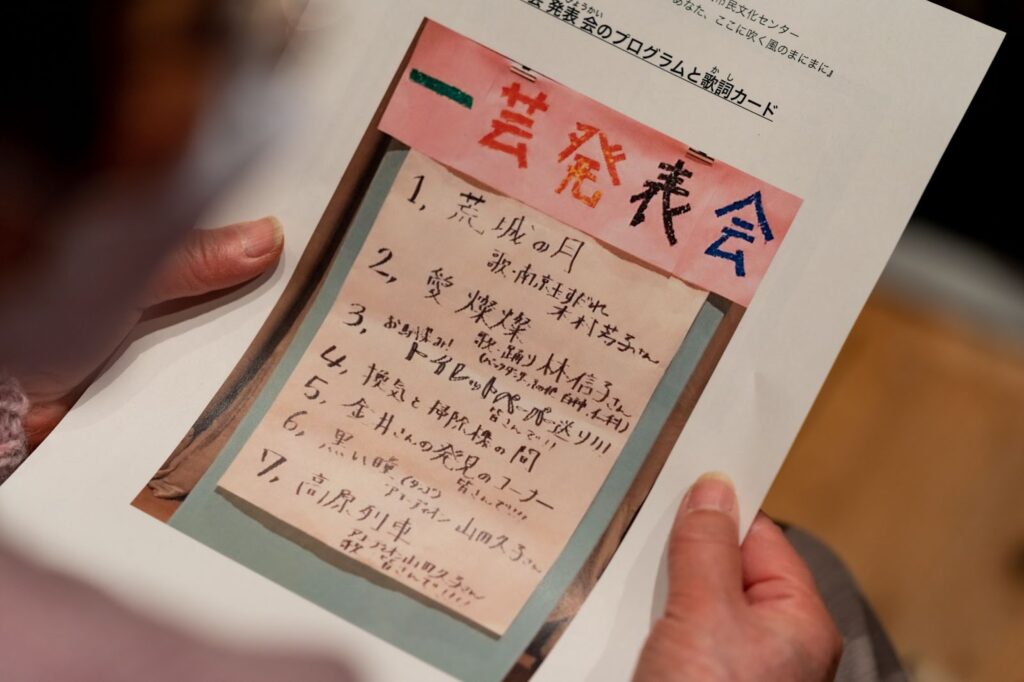 市民文化センター
あなた、ここに吹く風のまにまに』
発表会のプログラムと歌詞カード
一芸発表会
1, 荒城の月
歌・南京玉すだれ
木村芳子さん
2, 愛燦燦
歌・踊り 林信子さん
3, お馴染み! トイレットペーパー送り!!!
皆さんで!!!
4, 換気と掃除機の間
5, 金井さんの発見のコーナー
皆さんで!!!
6, 黒い瞳(タンゴ)
アコーディオン 山田久子さん
7, 高原列車
アコーディオン山田久子さん
歌 皆さんで!!!!